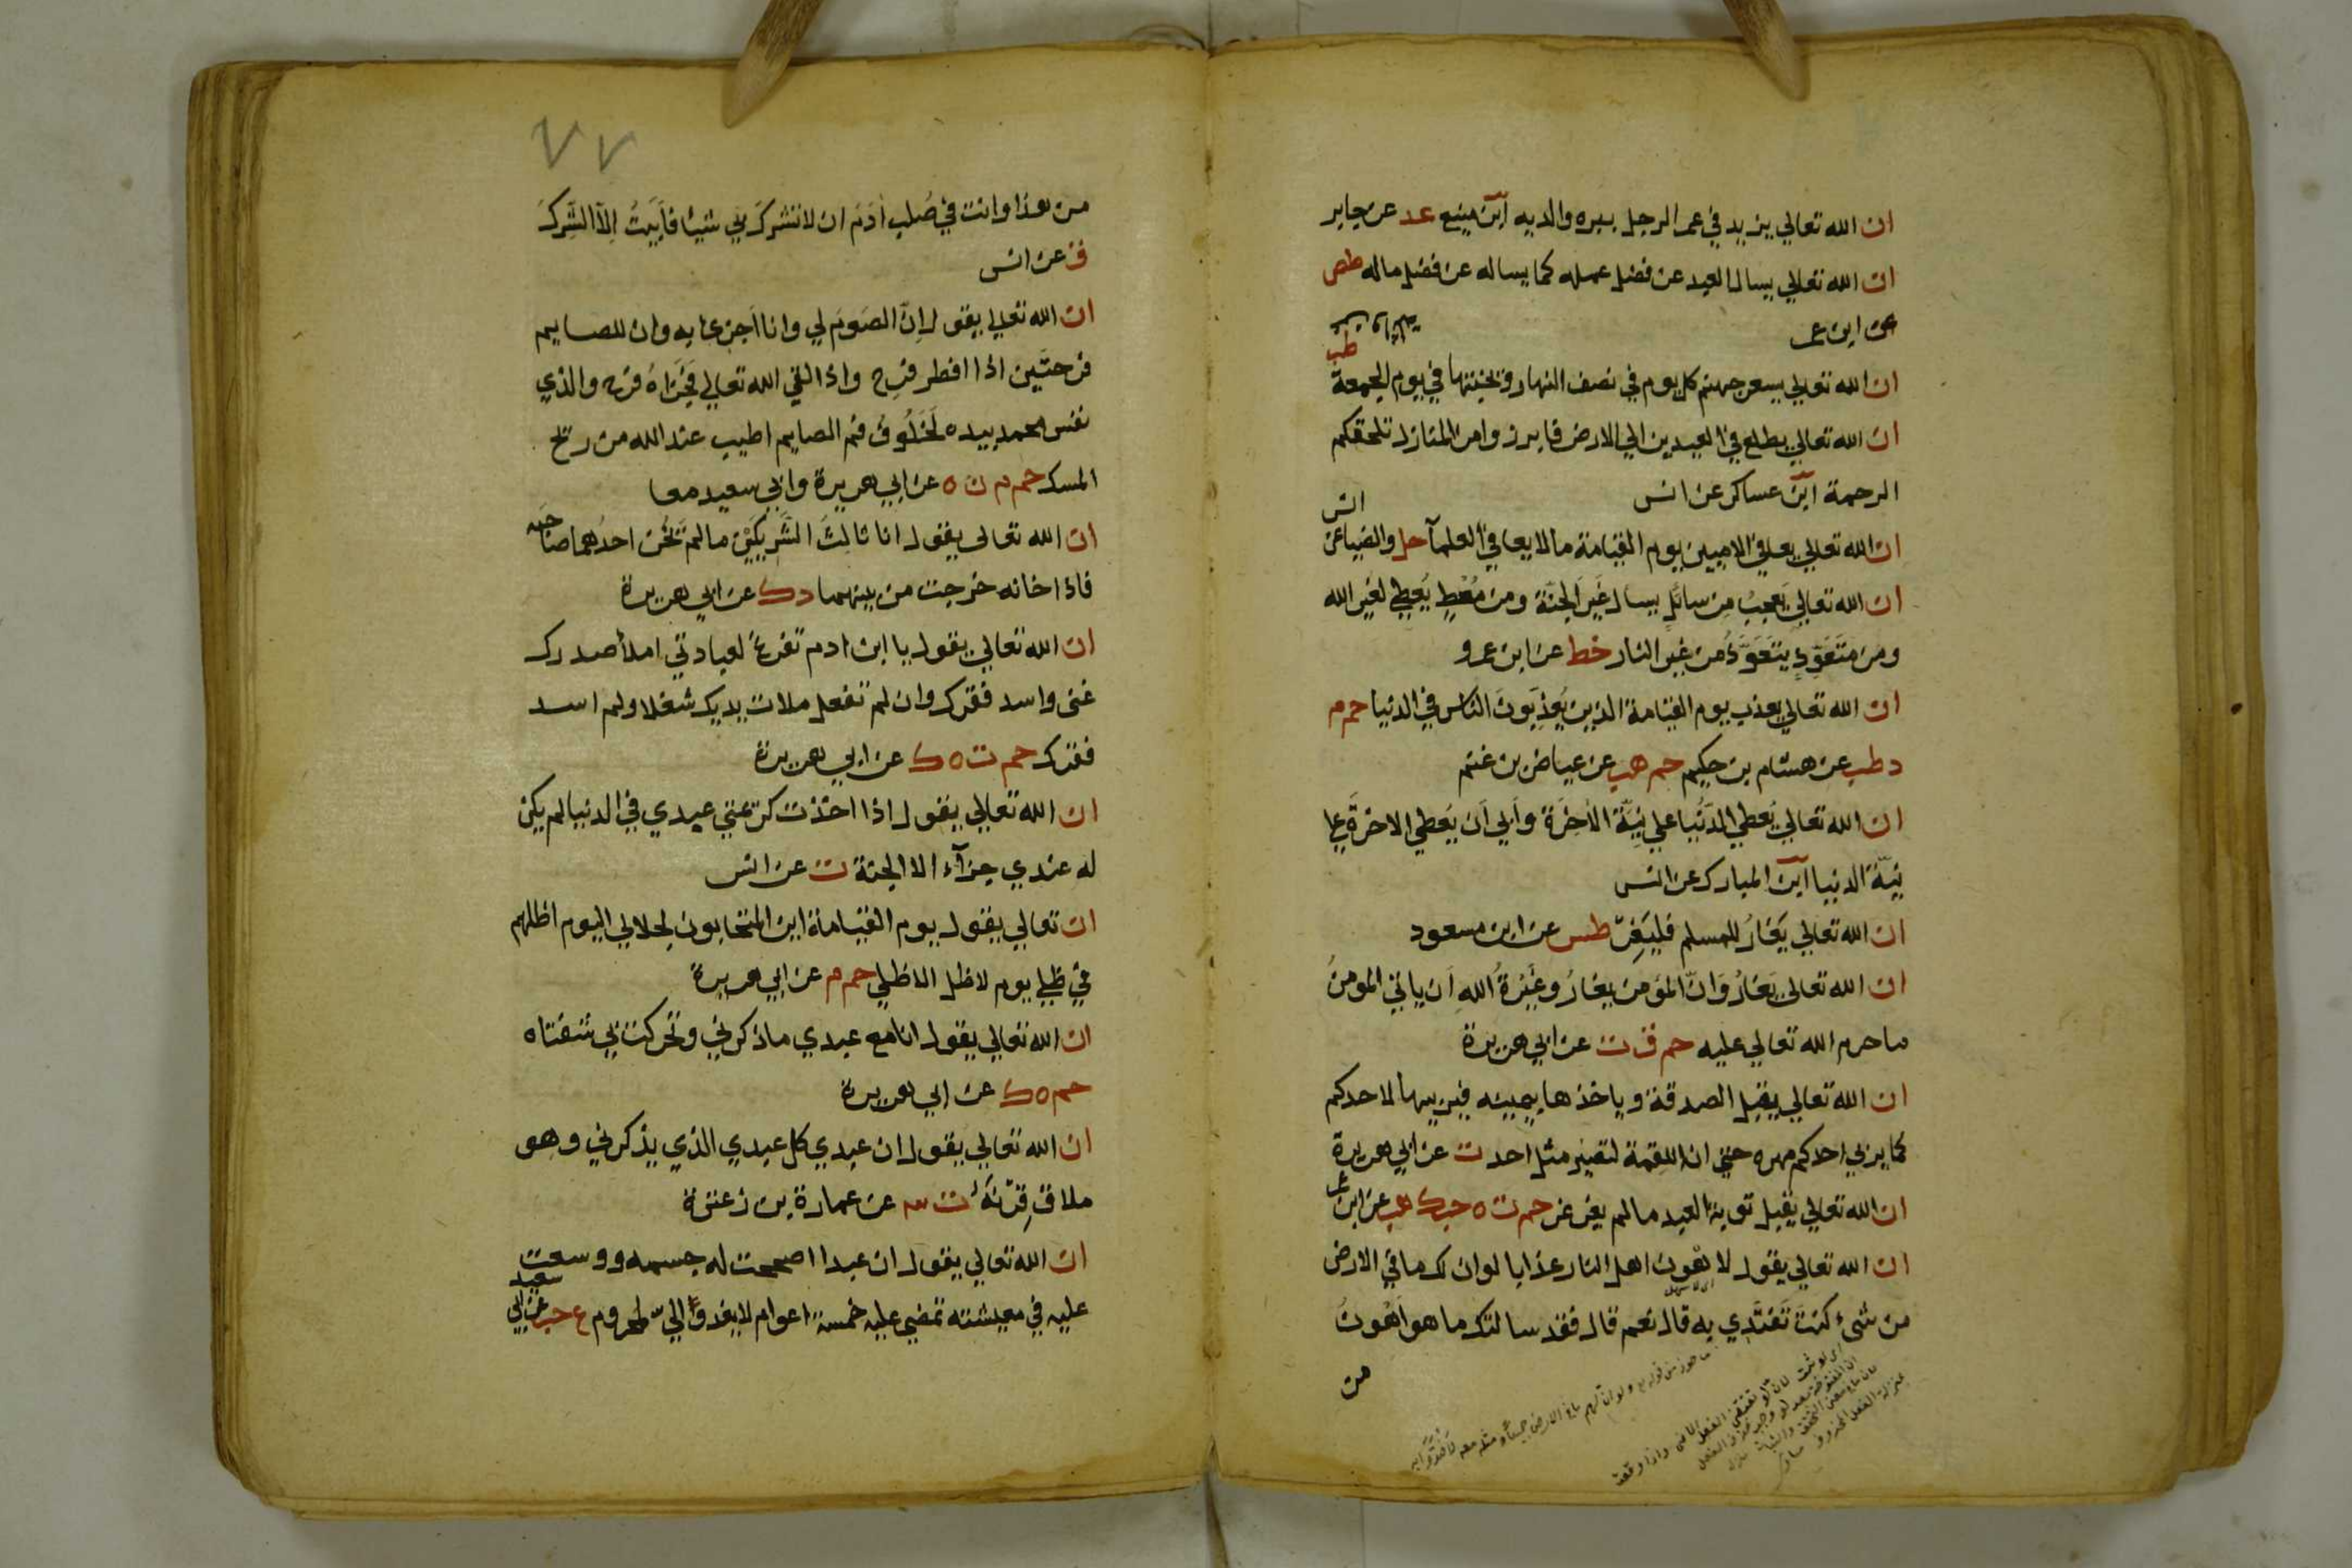 ان الله تعالي يزيد في عمر الرجل ببره والديه ابن منيع عد عن جابر
ان الله تعالي يسال العبد عن فضل عمله كما يساله عن فضل ماله طص
عن ابن عمر
طب
ان الله تعالي يسعر جهنم كل يوم في نصف النهار ويخبتها في يوم الجمعة
ان الله تعالي يطلع في العيدين الي الارض فابرزوا من المنازل تلحقكم
الرحمة ابن عساكر عن انس
انس
ان الله تعالي يعافي الاميين يوم القيامة ما لا يعافي العلمآ حل والضيا عن
ان الله تعالي يَعجبُ مِن سائلٍ يسال غَيرَ الجنّة ومن مُعْطٍ يُعطي لغَير الله
ومن متَعَوِّذٍ يتَعَوَّذُ من غير النار خط عن ابن عمرو
ان الله تعالي يعذب يوم القيامة الذين يُعذِّبونَ الناس في الدنيا حم م
د طب عن هشام بن حكيم حم هب عن عياض بن غنم
ان الله تعالي يُعطي الدُّنيا علي نِيَّة الآخِرَة وأَبي أَن يُعطي الاخرَةَ علي
نِيّة الدنيا ابن المبارك عن انس
ان الله تعالي يَغَارُ للمسلم فليَغِرّ طس عن ابن مسعود
ان الله تعالي يَغَارُ وَانّ المؤمن يغارُ وغَيْرةُ اللهِ اَن ياتي المومنُ
ما حرم الله تعالي عليه حم ق ت عن ابي هريرة
ان الله تعالي يقبل الصدقة وياخذها بيمينه فيربيها لاحدكم
كما يربي احدكم مهره حتي ان اللقمة لتصير مثل احد ت عن ابي هريرة
ان الله تعالي يقبل توبة العبد مالم يغرغر حم ت ه حب ك هب عن ابن عمر
ان الله تعالي يقول لاهون اهل النار عذابا لو ان لك ما في الارض
من شيء كنتَ تَفتَدي به قال نعم قال فقد سالتك ما هو اَهْونُ
من
من هذا وانت في صُلب اٰدَم ان لا تشرك بي شيئا فأَبَيتَ اِلّا الشِّركَ
ق عن انس
ان الله تعالي يقول اِنّ الصَومَ لي وانا اَجزي به وان للصايم
فرحتَين اذا افطر فرِح واذا لقي الله تعالي فجَزَاهُ فرح والذي
نفس محمد بيده لَخَلُوفُ فم الصايم اطيب عند الله من ريح
المسك حم م ن ه عن ابي هريرة وابي سعيد معا
ان الله تعالي يقول انا ثالِثُ الشَّرِيكَيْنِ مالم يَخُن احدُهما صاحبه
فاذا خانه خرجت من بينهما د ك عن ابي هريرة
ان الله تعالي يقول يا ابن ادم تفرغ لعبادتي املأ صدرك
غني واسد فقرك وان لم تفعل ملات يديك شغلا ولم اسد
فقرك حم ت ه ك عن ابي هريرة
ان الله تعالي يقول اذا اخذت كريمتي عبدي في الدنيا لم يكن
له عندي جزآء الا الجنة ت عن انس
ان تعالي يقول يوم القيامة اين المتحابون لجلالي اليوم اظلهم
في ظلي يوم لا ظل الا ظلي حم م عن ابي هريرة
ان الله تعالي يقول انا مع عبدي ما ذكرني وتحركت بي شفتاه
حم ه ك عن ابي هريرة
ان الله تعالي يقول ان عبدي كل عبدي الذي يذكرني وهو
ملاق قِرْنَهُ ت عن عمارة بن زعكرة
ان الله تعالي يقول ان عبدا اصححت له جسمه ووسعت
عليه في معيشته تمضي عليه خمسة اعوام لا يفد الي لمحروم ع حب عن ابي سعيد